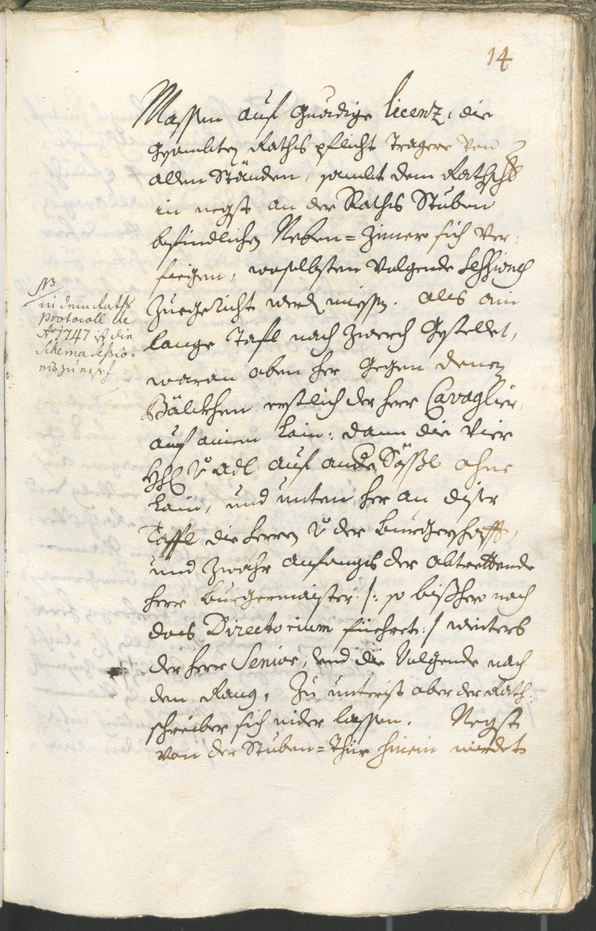 14
Massen auf gnädige licenz, die
gesambten Raths pflicht tragere von
allen Ständen, sambt dem Rathschb
in negst an der Raths Stuben
befindlichen Neben=Zimer sich ver¬
fiegen, woselbsten volgende Sessiones
zuegericht werden miessen. Als ain
lange Tafl nach zwerch gestellet,
waran oben her gegen denen
Bälckhen erstlich der herr Cavaglier,
auf ainen Lain: dann die vier
HH v Adl auf andre Sässl ohne
Lain, und unten her an diser
Taffl die herren v der burgerschafft,
und zwahr anfangs der abtrettende
herr burgermaister /: so bishero noch
das Directorium fiehret :/ winters
der herr Senior, und die volgende nach
dem Rang, zu unterist aber der Rath¬
schreiber sich nider lassen. Negst
von der Stuben=Thür hinein werdet
NB
in dem Raths
Protocoll de
Ao 1747 ist die
Schema Sessio¬
nis zu ersech